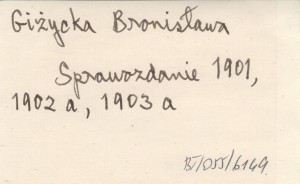 Giżycka Bronisława
Sprawozdanie 1901,
1902 a, 1903 a
B/055/6149